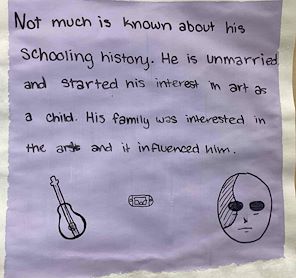 Not much is known about his
Schooling history. He is unmarried
and started his interest in art as
a child. His family was interested in
the arts and it influenced him.